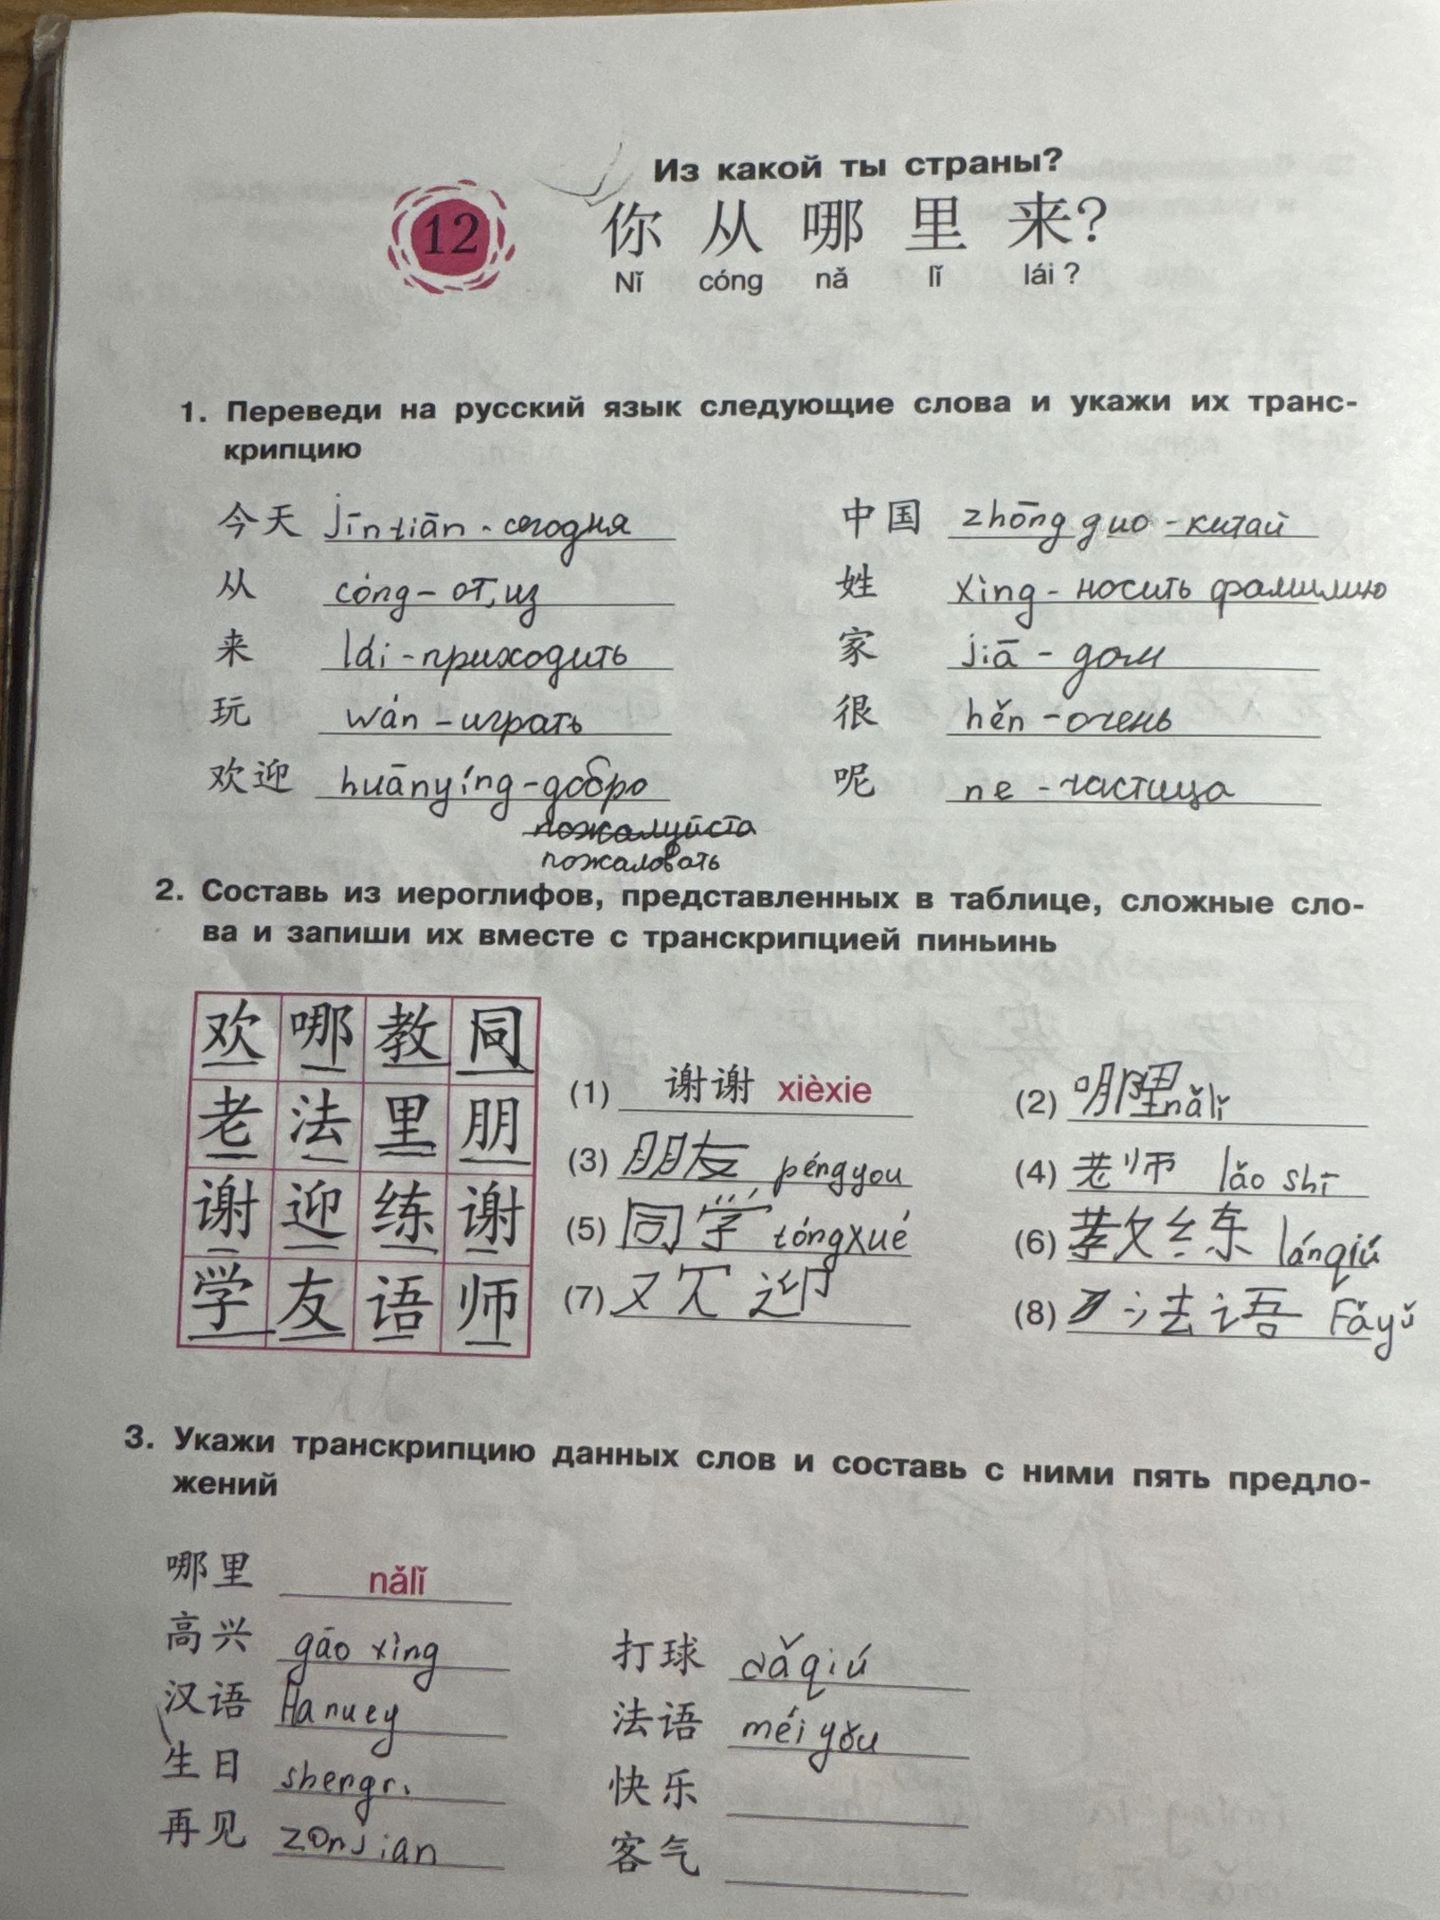 Из какой ты страны?
12
你 从 哪 里 来?
Nǐ cóng nǎ lǐ lái ?
1. Переведи на русский язык следующие слова и укажи их транс-
крипцию
今天 jīntiān - сегодня
中国 zhōng guo - китай
从 cóng - от, из
姓 xìng - носить фамилию
来 lái - приходить
家 jiā - дом
玩 wán - играть
很 hěn - очень
欢迎 huānyíng - добро
呢 ne - частица
пожалуйста
пожаловать
2. Составь из иероглифов, представленных в таблице, сложные сло-
ва и запиши их вместе с транскрипцией пиньинь
欢 哪 教 同
老 法 里 朋
谢 迎 练 谢
学 友 语 师
(1) 谢谢 xièxie
(2) 哪里 nǎlǐ
(3) 朋友 péngyou
(4) 老师 lǎo shī
(5) 同学 tóngxué
(6) 教练 lánqiú
(7) 欢迎
(8) 法语 Fǎyǔ
3. Укажи транскрипцию данных слов и составь с ними пять предло-
жений
哪里 nǎlǐ
高兴 gāo xìng
打球 dǎqiú
汉语 Hanuey
法语 méi yǒu
生日 shengri
快乐
再见 zonjian
客气